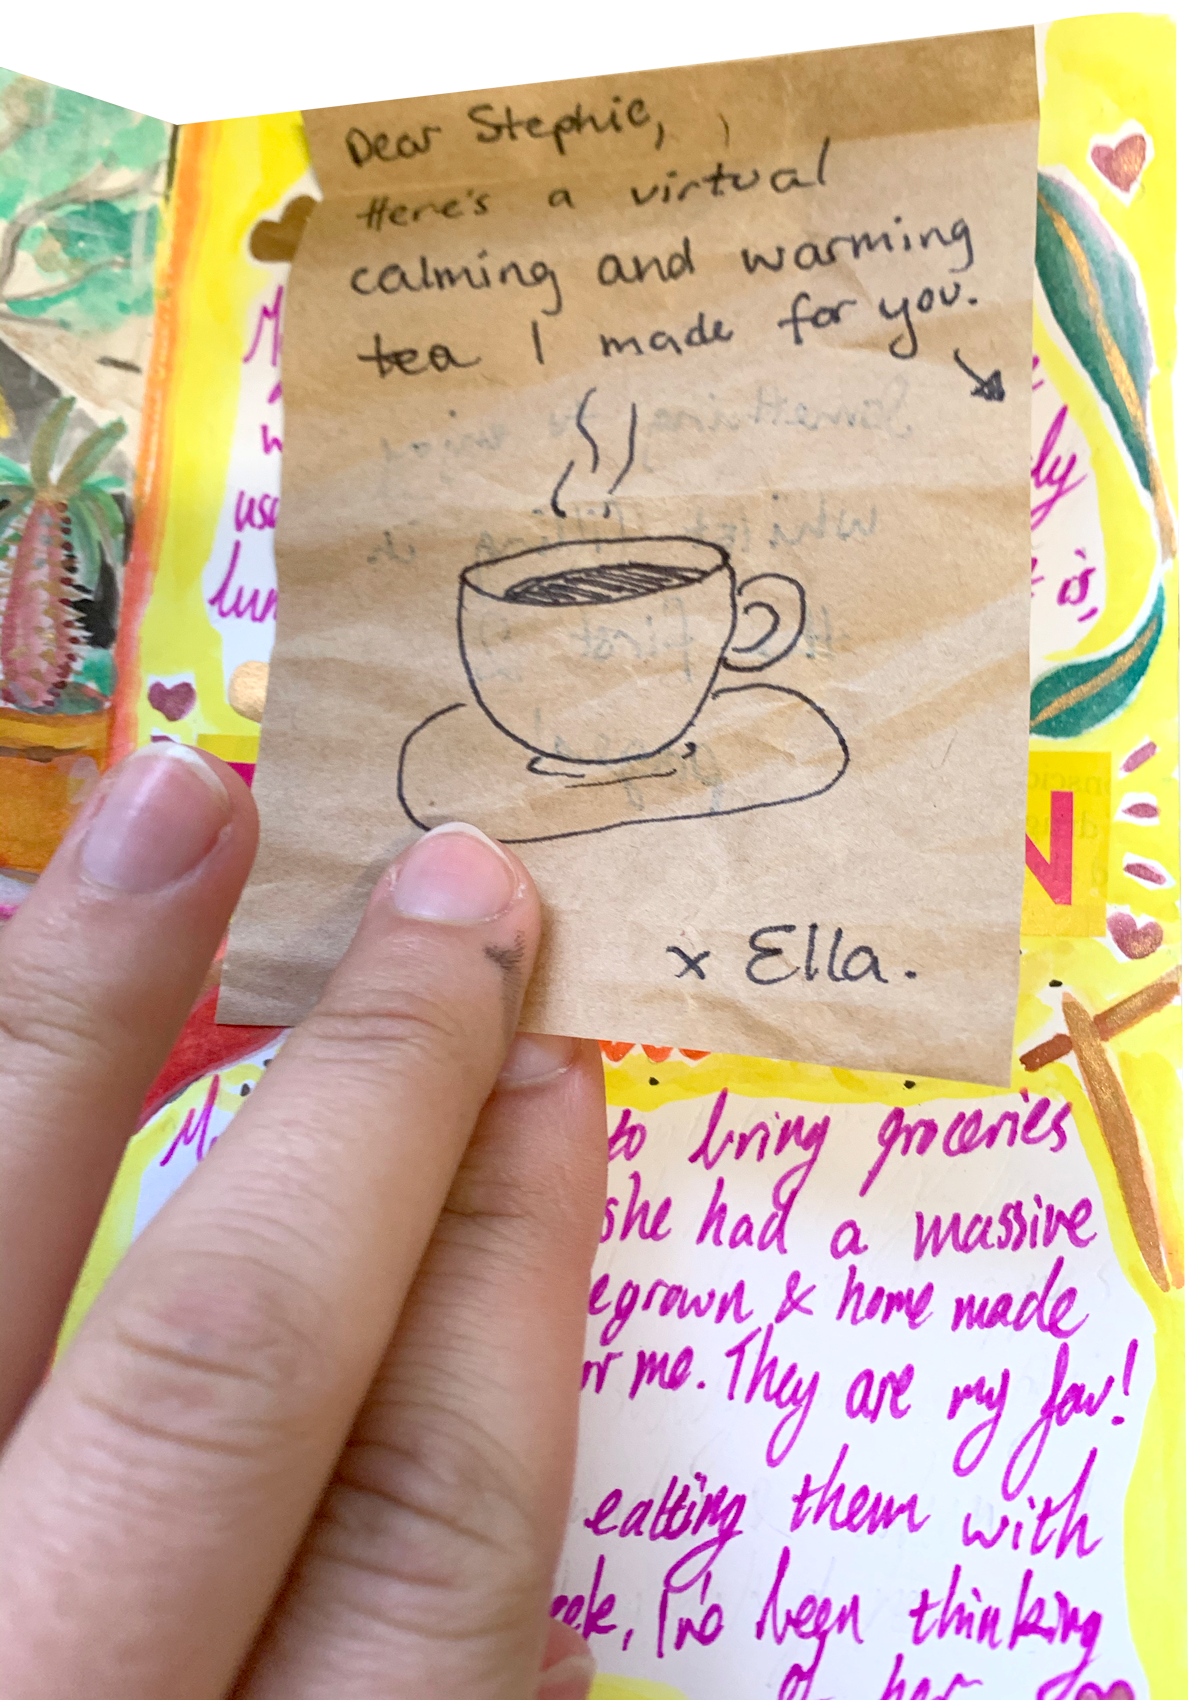 Dear Stephie,
Here's a virtual
calming and warming
tea I made for you.
x Ella.
usu
lun
ly
is,
N
to bring groceries
she had a massive
egrown & home made
or me. They are my fav!
eatting them with
I've been thinking
of her